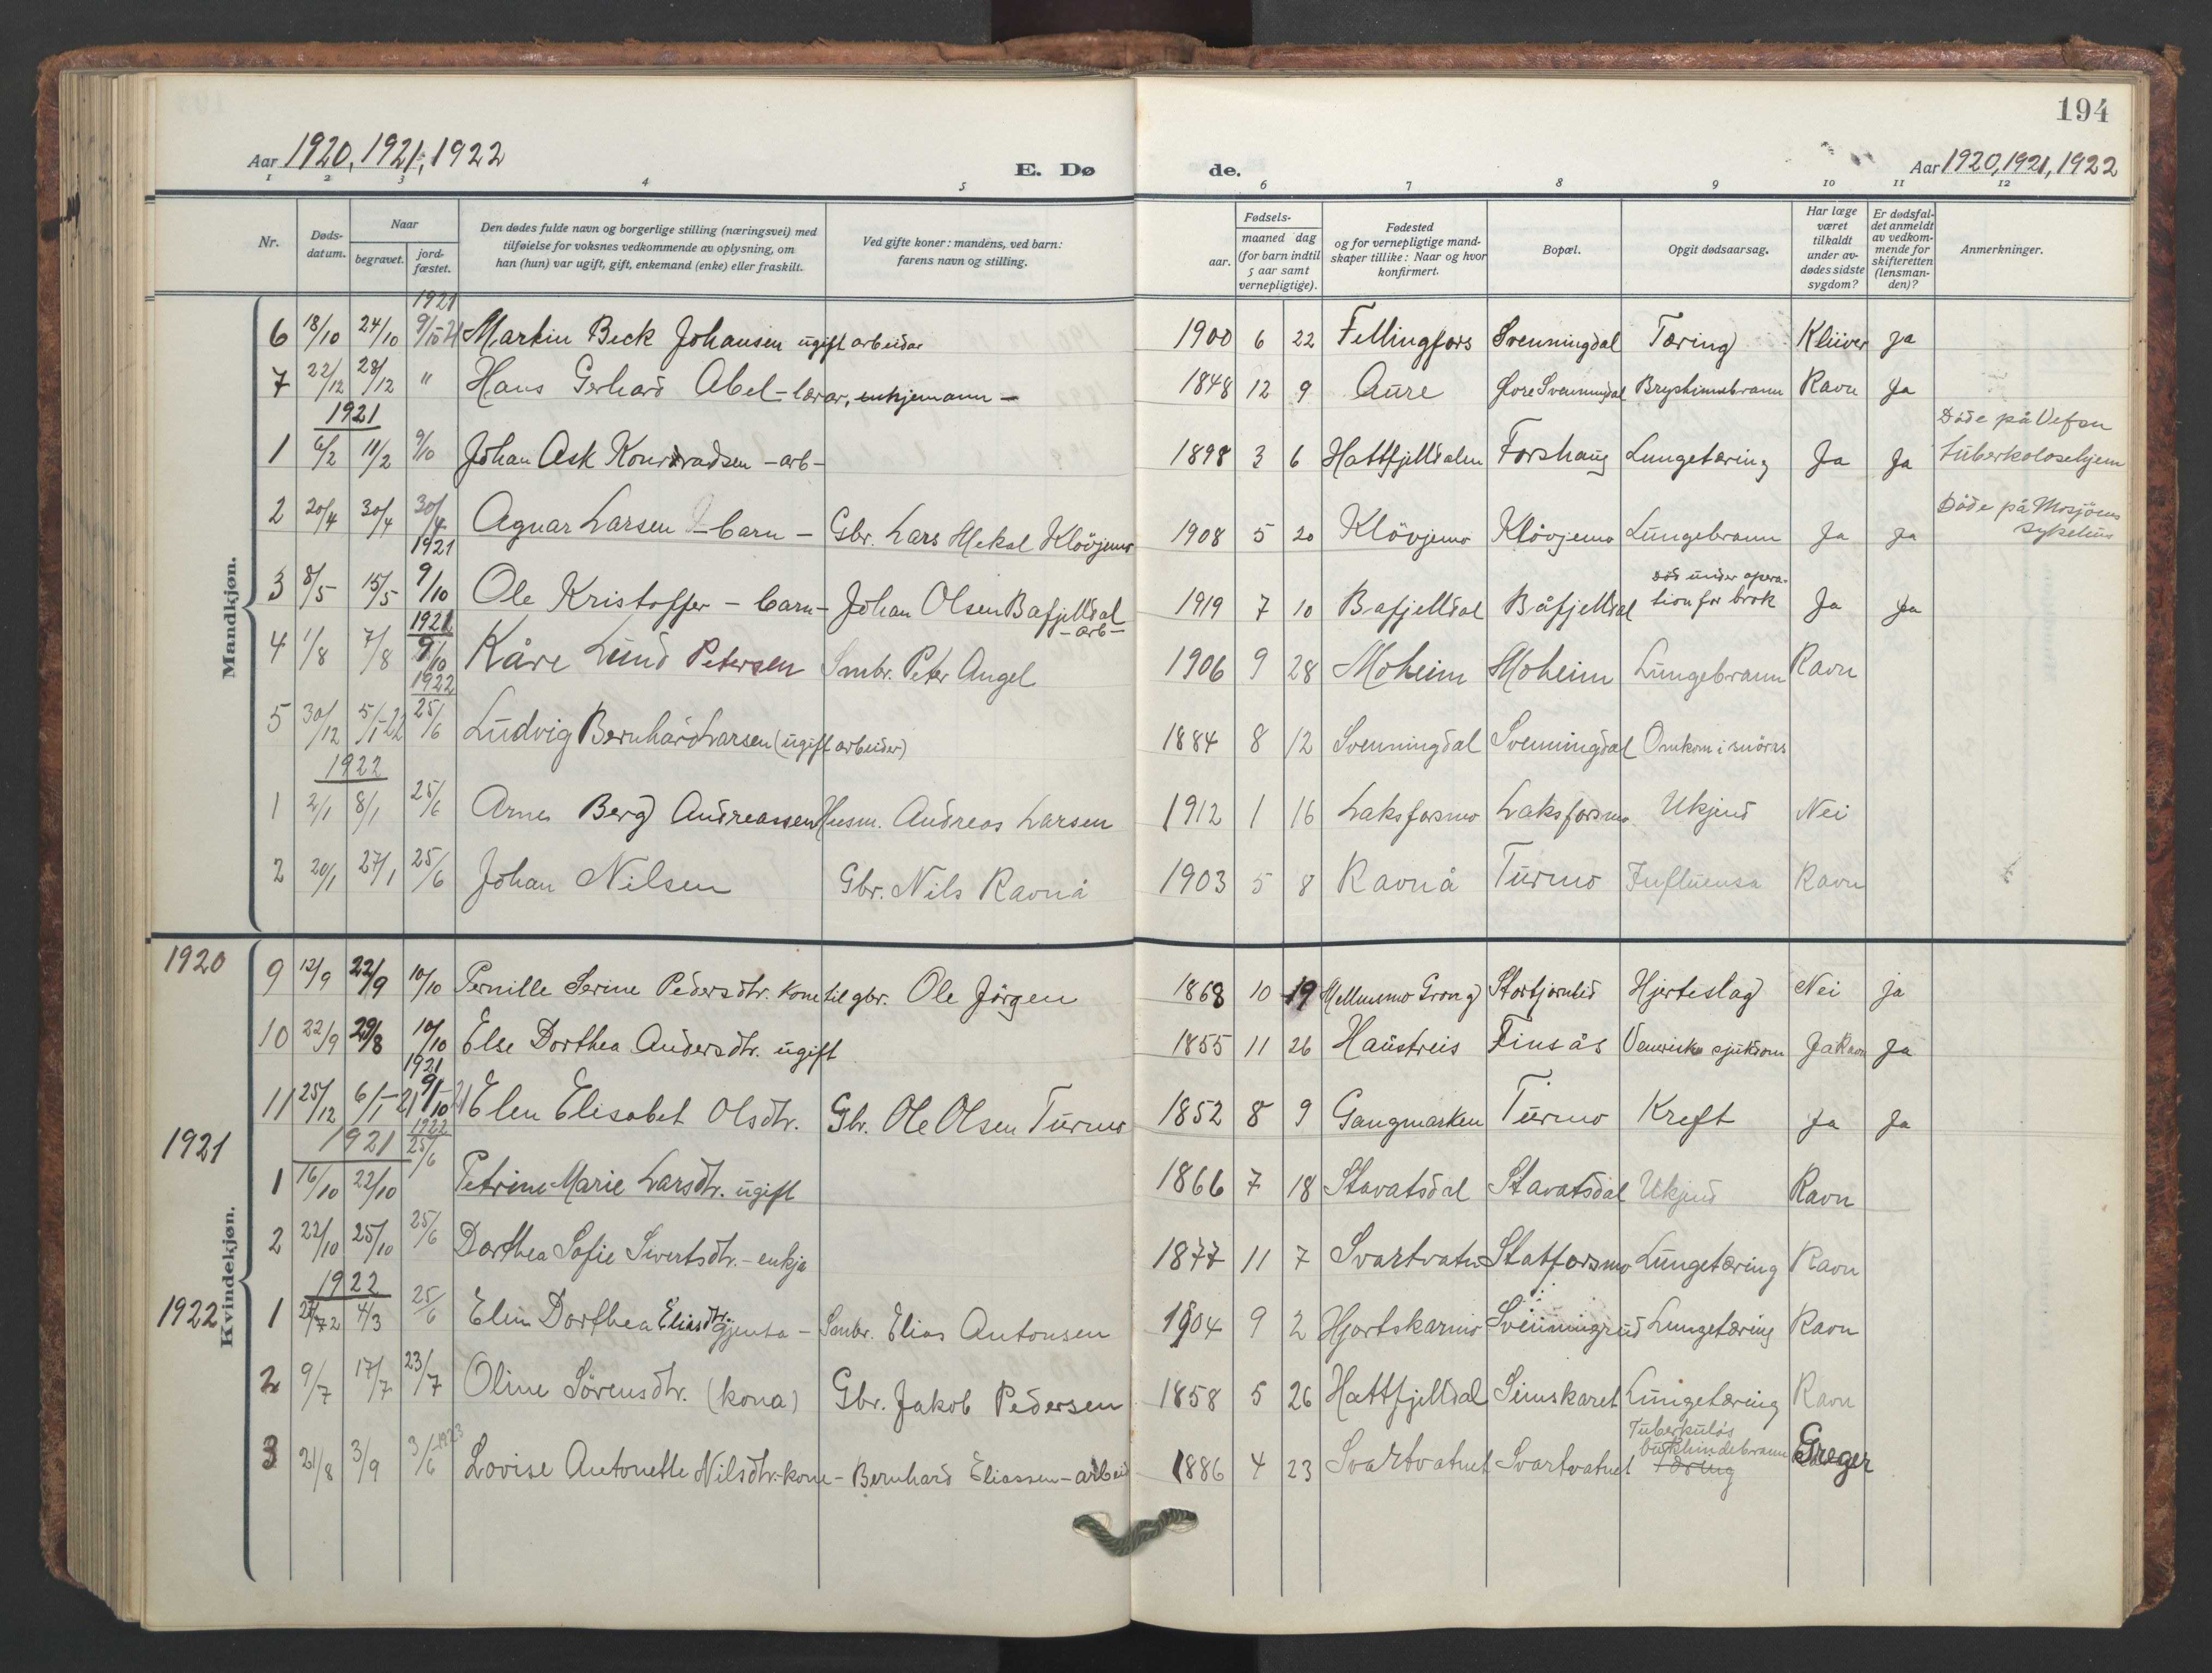 194
Aar 1920, 1921, 1922
E. Dø de.
Aar 1920, 1921, 1922
1 2 3 4 5 6 7 8 9 10 11 12
Nr. | Døds-datum. | Naar begravet. | Naar jord-fæstet. | Den dødes fulde navn og borgerlige stilling (næringsvei) med tilføielse for voksnes vedkommende av oplysning, om han (hun) var ugift, gift, enkemand (enke) eller fraskilt. | Ved gifte koner: mandens, ved barn: farens navn og stilling. | Fødsels- aar. | maaned dag (for barn indtil 5 aar samt vernepligtige). | Fødested og for vernepligtige mandskaper tillike: Naar og hvor konfirmert. | Bopæl. | Opgit dødsaarsag. | Har læge været tilkaldt under avdødes sidste sygdom? | Er dødsfaldet anmeldt av vedkommende for skifteretten (lensmanden)? | Anmerkninger.
Mandkjøn.
1921
6 18/10 24/10 9/10-21 Martin Beck Johansen ugift arbeidar 1900 6 22 Fellingfors Svenningdal Tæring Klüver ja
7 22/12 28/12 " Hans Gerhard Abel - lærar, enkjemann - 1848 12 9 Aure Øvre Svenningdal Brysthinnebrann Ravn Ja
1921
1 6/2 11/2 9/10 Johan Ask Konradsen - arb - 1898 3 6 Hattfjelldalen Forshaug Lungetæring Ja Ja Döde på Vefsn Tuberkolosehjem
2 20/4 30/4 30/4 Agnar Larsen - barn - Gbr. Lars Mekal Klövjemo 1908 5 20 Klövjemo Klövjemo Lungebrann Ja ja Döde på Mosjöens sykehus
1921
3 8/5 15/5 9/10 Ole Kristoffer - barn - Johan Olsen Bafjelldal - arb - 1919 7 10 Bafjelldal Båfjelldal Död under operation for brok Ja Ja
1921
4 1/8 7/8 9/10 Kåre Lund Petersen Smbr. Peter Angel 1906 9 28 Moheim Moheim Lungebrann Ravn
1922
5 30/12 5/1-22 25/6 Ludvig Bernhard Larsen (ugift arbeider) 1884 8 12 Svenningdal Svenningdal Omkom i snöras
1922
1 2/1 8/1 25/6 Arne Berg Andreassen Husm. Andreas Larsen 1912 1 16 Laksforsmo Laksforsmo Ukjend Nei
2 20/1 27/1 25/6 Johan Nilsen Gbr. Nils Ravnå 1903 5 8 Ravnå Turmo Influensa Ravn
Kvindekjøn.
1920
9 12/9 22/9 10/10 Pernille Serine Pedersdtr. Kone til gbr. Ole Jörgen 1868 10 19 Mellumsmo Grong Hjerteslag Nei ja
10 22/9 29/8 10/10 Else Dorthea Andersdtr. ugift 1855 11 26 Haustreis Finsås sjukdom Ja Ravn Ja
1921
11 25/12 6/1-21 9/10 21 Elen Elisabet Olsdtr. Gbr. Ole Olsen Turmo 1852 8 9 Gangmarken Turmo Kreft Ja Ja
1921 1921 1922
1 16/10 22/10 25/6 Petrine Marie Larsdtr. ugift 1866 7 18 Stavatsdal Stavatsdal Ukjend Ravn
2 22/10 25/10 25/6 Dorthea Sofie Sivertsdtr. - enkja 1877 11 7 Svartvatn Statforsmo Lungetæring Ravn
1922 1922
1 4/3 25/6 Elin Dorthea Eliasdtr. gjenta - Smbr. Elias Antonsen 1904 9 2 Hjortskarmo Lungetæring Ravn
2 9/7 17/7 23/7 Oline Sörensdtr. (kona) Gbr. Jakob Pedersen 1858 5 26 Hattfjelldal Simskaret Lungetæring Ravn
3 21/8 3/9 3/6-1923 Lovise Antonette Nilsdtr. - kone - Bernhard Eliassen - arbeid 1886 4 23 Svartvatnet Svartvatnet Tuberkuløs bukhindebrann Tæring Greger